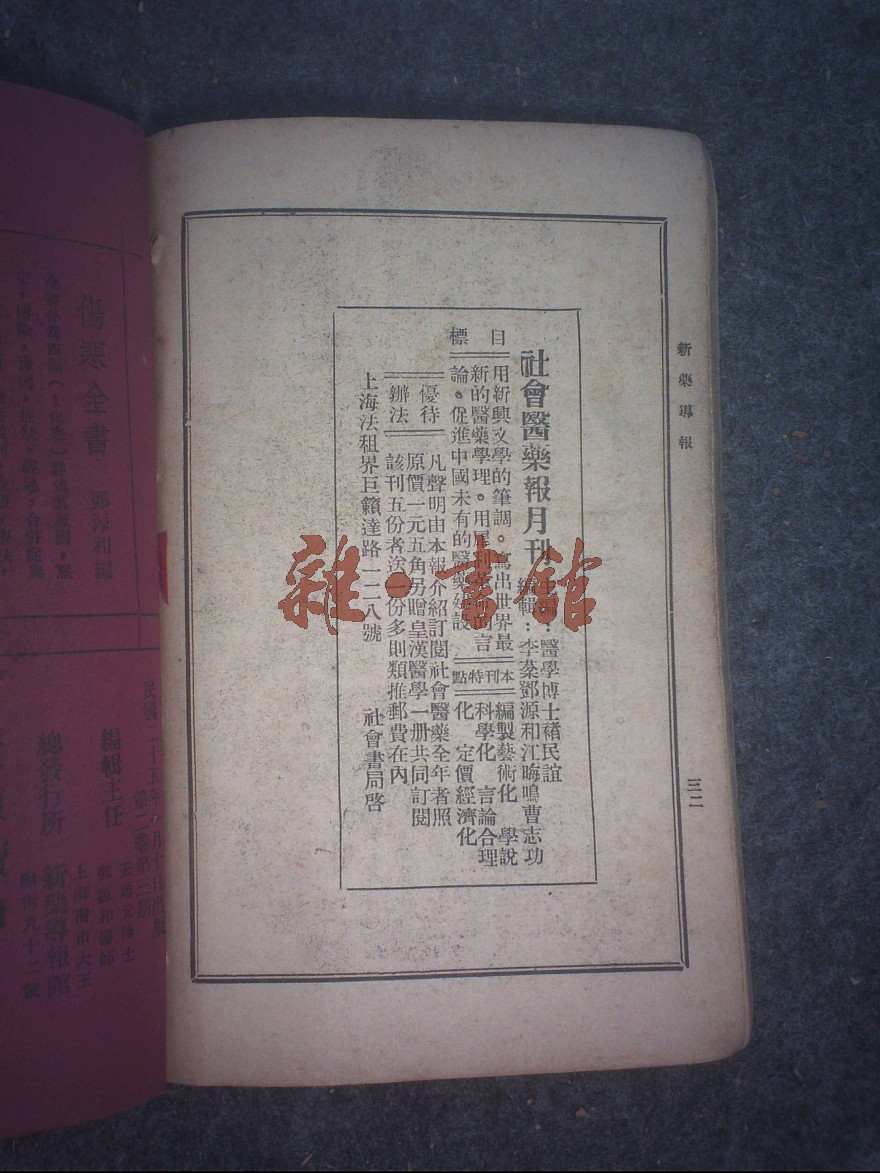 新藥導報
三二
社會醫藥報月刊
主編：醫學博士褚民誼
編輯：李燊鄧源和江晦鳴曹志功
目標
用新興文學的筆調。寫出世界最
新的醫藥學理。用犀利革命的言
論。促進中國未有的醫藥建設
本刊特點
編製藝術化 學說
科學化 言論合理
化 定價經濟化
優待辦法
凡聲明由本報介紹訂閱社會醫藥全年者照
原價一元五角另贈皇漢醫學一册共同訂閱
該刊五份者送一份多則類推郵費在內
上海法租界巨籟達路一二八號
社會書局啓
雜·書館
傷寒全書
鄧源和編
民國二十五年
第二卷第三期
編輯主任
總發行所
新藥導報館
上海南市大王
廟街九十二號